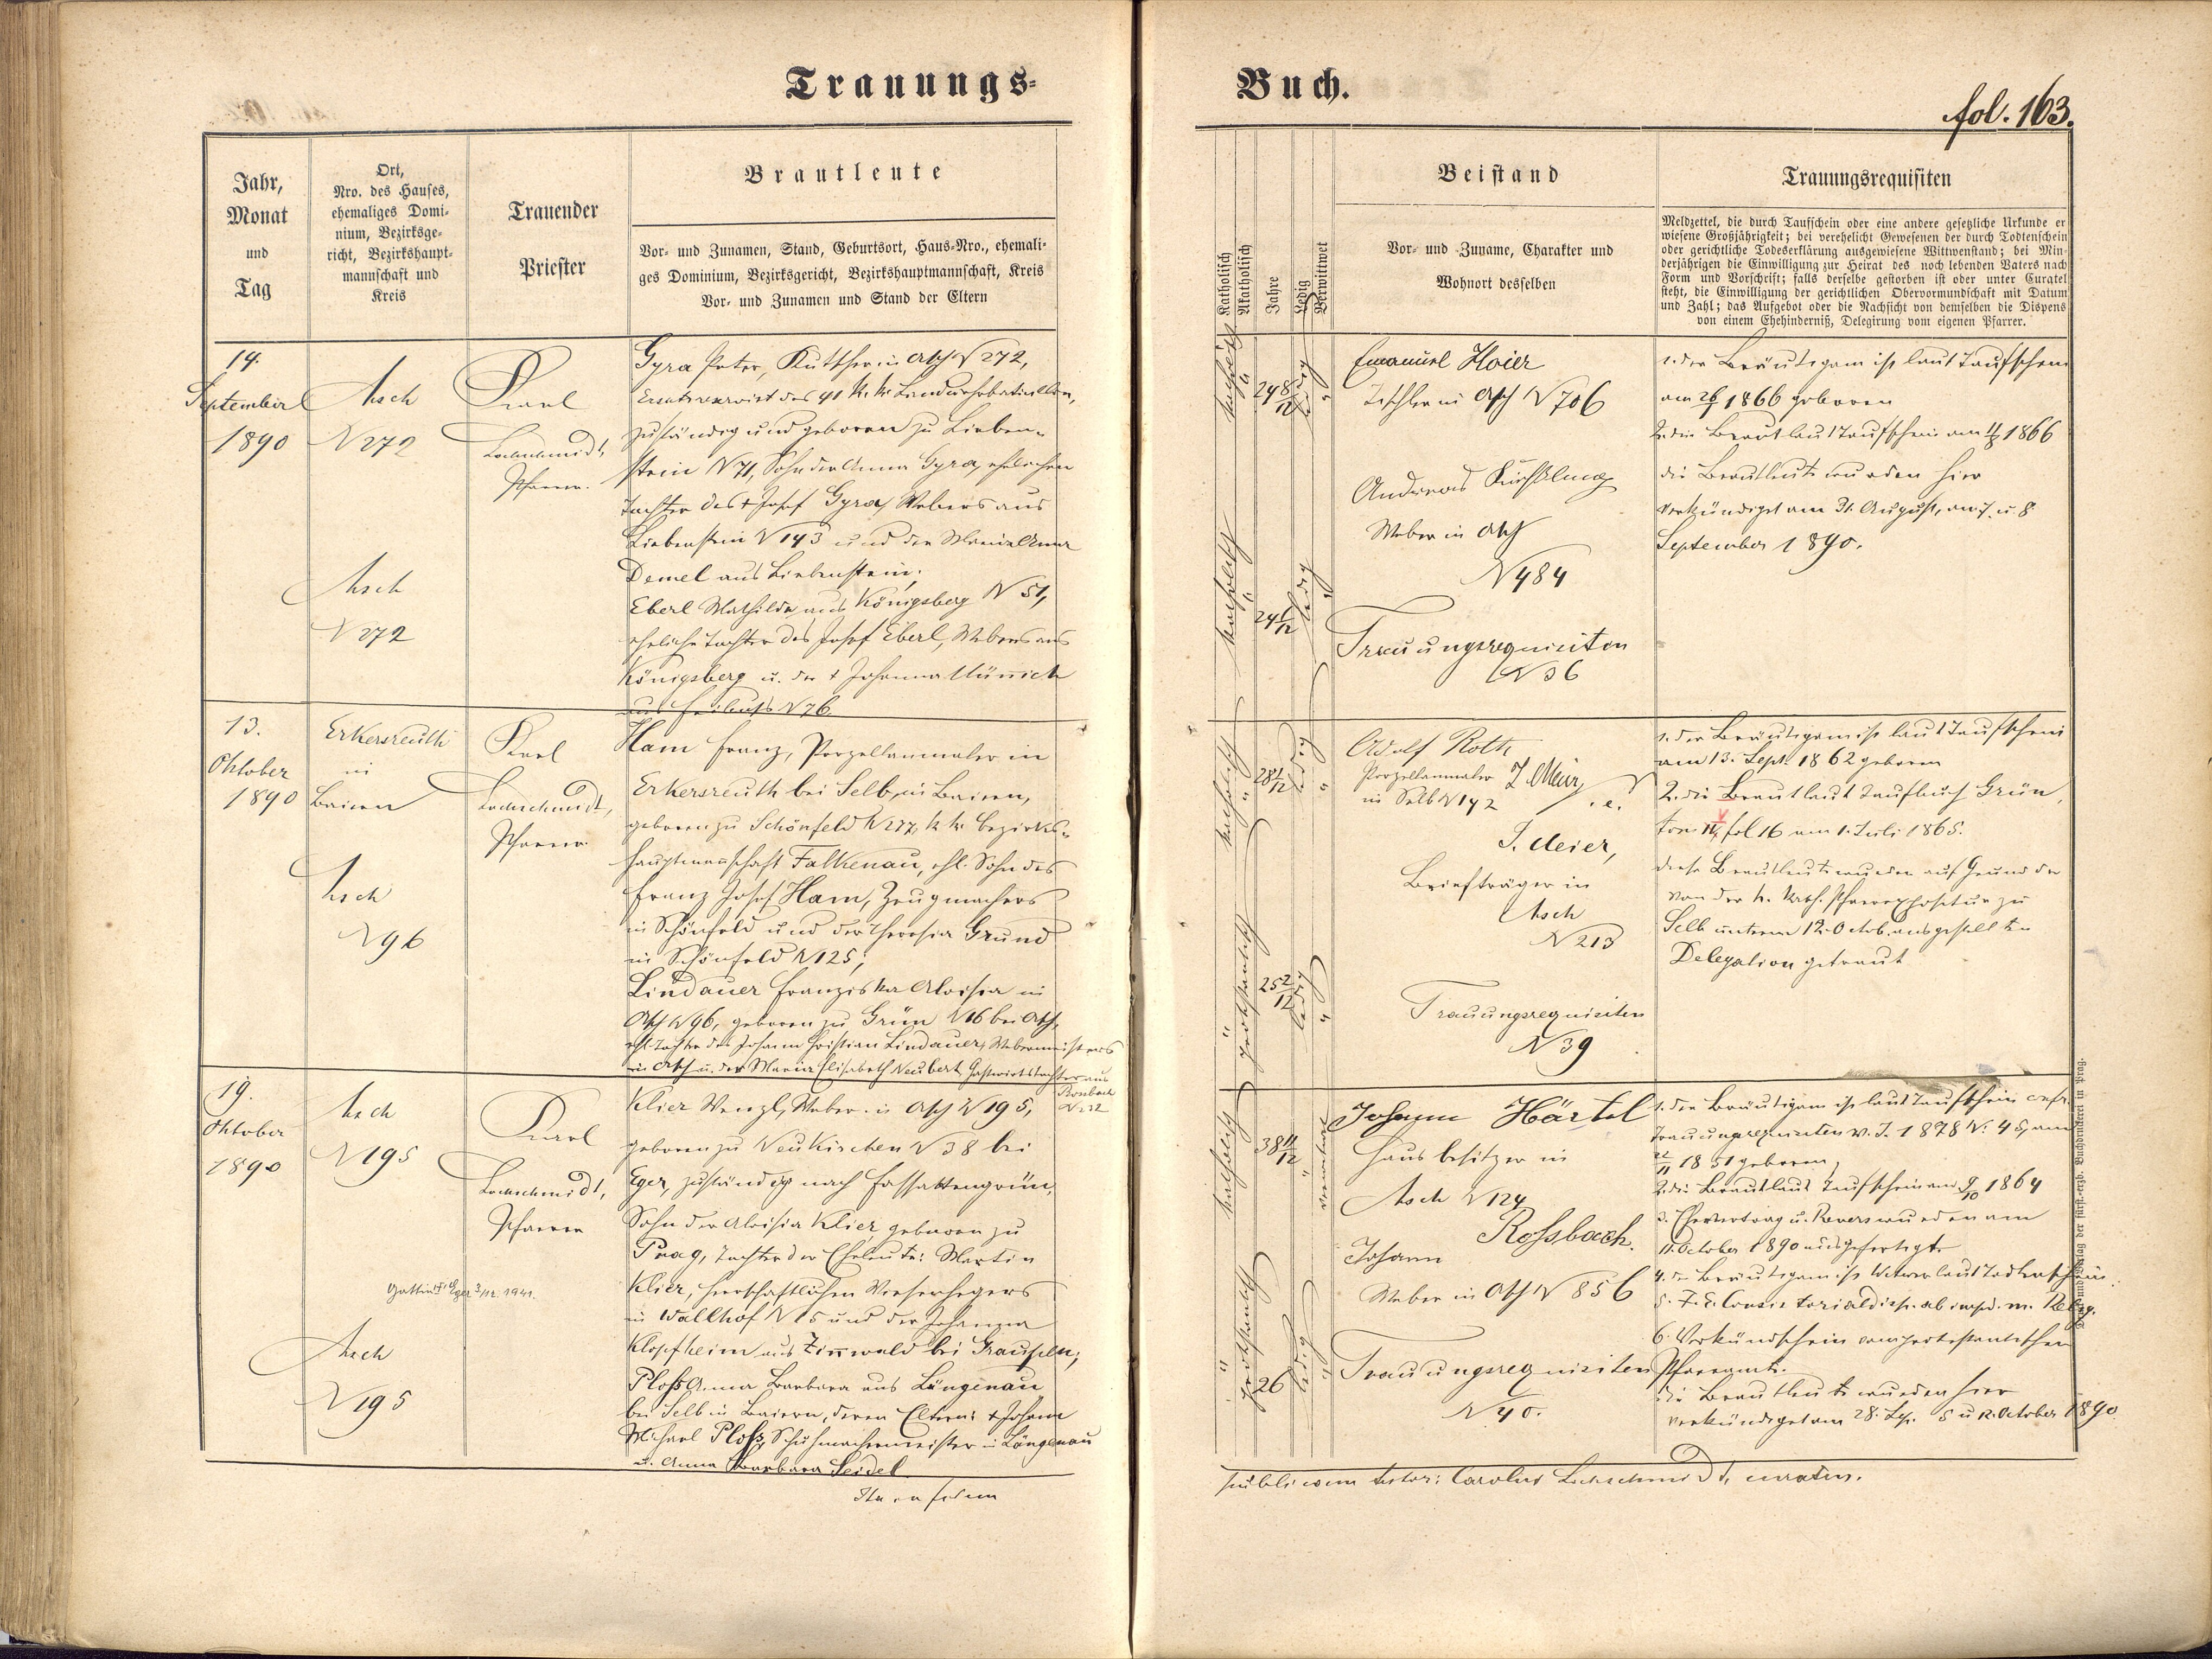 Trauungs-
Jahr,
Monat
und
Tag
Ort,
Nro. des Hauses,
ehemaliges Domi-
nium, Bezirksge-
richt, Bezirkshaupt-
mannschaft und
Kreis
Trauender
Priester
Brautleute
Vor- und Zunamen, Stand, Geburtsort, Haus-Nro., ehemali-
ges Dominium, Bezirksgericht, Bezirkshauptmannschaft, Kreis
Vor- und Zunamen und Stand der Eltern
14.
September
1890
Asch
N 272
Asch
N 272
Karl
Lochschmidt,
Pfarrer.
Gyra Peter, Kutscher in Asch N 272,
Ersatzreservist des 41 k. k. Landwehrbataillon,
zuständig und geboren zu Lieben-
stein N 71, Sohn der Anna Gyra, ehelichen
Tochter des + Josef Gyra, Webers aus
Liebenstein N 143 und der Maria Anna
Demel aus Liebenstein;
Eberl Mathilde aus Königsberg N 51,
eheliche Tochter des Josef Eberl, Webers aus
Königsberg u. der + Johanna Münnich
aus N 76.
13.
Oktober
1890
Erkersreuth
in
Baiern
Asch
N 96
Karl
Lochschmidt,
Pfarrer.
Ham Franz, Porzellanmaler in
Erkersreuth bei Selb, in Baiern,
geboren zu Schönfeld N 277, k. k. Bezirks-
hauptmannschaft Falkenau, ehl. Sohn des
Franz Josef Ham, Zeugmachers
in Schönfeld und der Theresia Grund
in Schönfeld N 125;
Lindauer Franziska Aloisia in
Asch N 96, geboren zu Grün N 16 bei Asch,
ehl. Tochter des Johann Christian Lindauer, Webermeisters
in Asch u. der Maria Elisabeth Neubert, Gastwirtstochter aus
Rossbach
N 232
19.
Oktober
1890
Asch
N 195
Gattin + Eger 3/12. 1941.
Asch
N 195
Karl
Lochschmidt,
Pfarrer
Klier Wenzl, Weber in Asch N 195,
geboren zu Neukirchen N 38 bei
Eger, zuständig nach Fassattengrün,
Sohn der Aloisia Klier, geboren zu
Prag, Tochter der Eheleute: Martin
Klier, herrschaftlichen
in Wallhof N 5 und der Johanna
Klopfheim aus Zinnwald bei Graupen;
Ploß Anna Barbara aus Längenau
bei Selb in Baiern, deren Eltern: + Johann
Michael Ploß, Schuhmachermeister in Längenau
u. Anna Barbara Seidel.
Buch.
fol. 163.
Katholisch
Akatholisch
Jahre
Ledig
Verwittwet
Beistand
Vor- und Zuname, Charakter und
Wohnort desselben
Trauungsrequisiten
Meldzettel, die durch Taufschein oder eine andere gesetzliche Urkunde er
wiesene Großjährigkeit; bei verehelicht Gewesenen der durch Todtenschein
oder gerichtliche Todeserklärung ausgewiesene Wittwenstand; bei Min-
derjährigen die Einwilligung zur Heirat des noch lebenden Vaters nach
Form und Vorschrift; falls derselbe gestorben ist oder unter Curatel
steht, die Einwilligung der gerichtlichen Obervormundschaft mit Datum
und Zahl; das Aufgebot oder die Nachsicht von demselben die Dispens
von einem Ehehinderniß, Delegirung vom eigenen Pfarrer.
katholisch
24 8/12
ledig
katholisch
24 6/12
ledig
Emanuel Hoier
Tischler in Asch N 706
Andreas
Weber in Asch
N 484
Trauungsrequisiten
N 36
1. der Bräutigam ist laut Taufschein
am 1866 geboren
2. die Braut laut Taufschein am 1866
die Brautleute wurden hier
verkündiget am 31. August, am 7. u. 8.
September 1890.
katholisch
28 1/12
ledig
protestantisch
25 2/12
ledig
Adolf Roth
Porzellanmaler
in Selb N 192
J. Meier,
Briefträger in
Asch
N 213
Trauungsrequisiten
N 39
1. der Bräutigam ist laut Taufschein
am 13. Sept. 1862 geboren
2. die Braut laut Taufbuch Grün,
tom fol 16 am 1. Juli 1865.
diese Brautleute wurden auf Grund der
von der k. kath. Pfarrexpositur zu
Selb unterm 12. Octob. ausgestellten
Delegation getraut
katholisch
38 11/12
verwitwet
protestantisch
26
ledig
Johann Härtel
Hausbesitzer in
Asch N 124
Rossbach
Johann
Weber in Asch N 856
Trauungsrequisiten
N 40.
1. der Bräutigam ist laut Taufschein cnfr.
Trauungsrequisiten v. J. 1878 N. 45, am
1851 geboren,
2. die Braut laut Taufschein am 9/10 1864
3. Ehevertrag u. Revers wurden am
11. October 1890 ausgefertigt
4. der Bräutigam ist Witwer laut Todtenschein.
5. F. E. Consistorialdisp. ab imped. m. Relig.
6. Verkündschein vom protestantischen
Pfarramte.
die Brautleute wurden hier
verkündiget am 28. Sep. 5 u 12. October 1890
Druck und Verlag der fürst.-erzb. Buchdruckerei in Prag.
Ita in fidem
publicam testor: Carolus Lochschmidt, curatus.